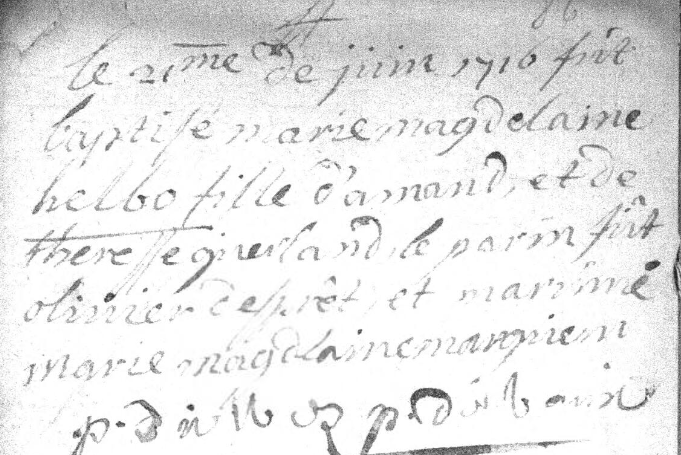 le 21me de juin 1716 fût
baptisé marie magdelaine
helbo fille d'amand, et de
theresse querland, le parin fût
olivier desprêt, et marinne
marie magdlaine marquien